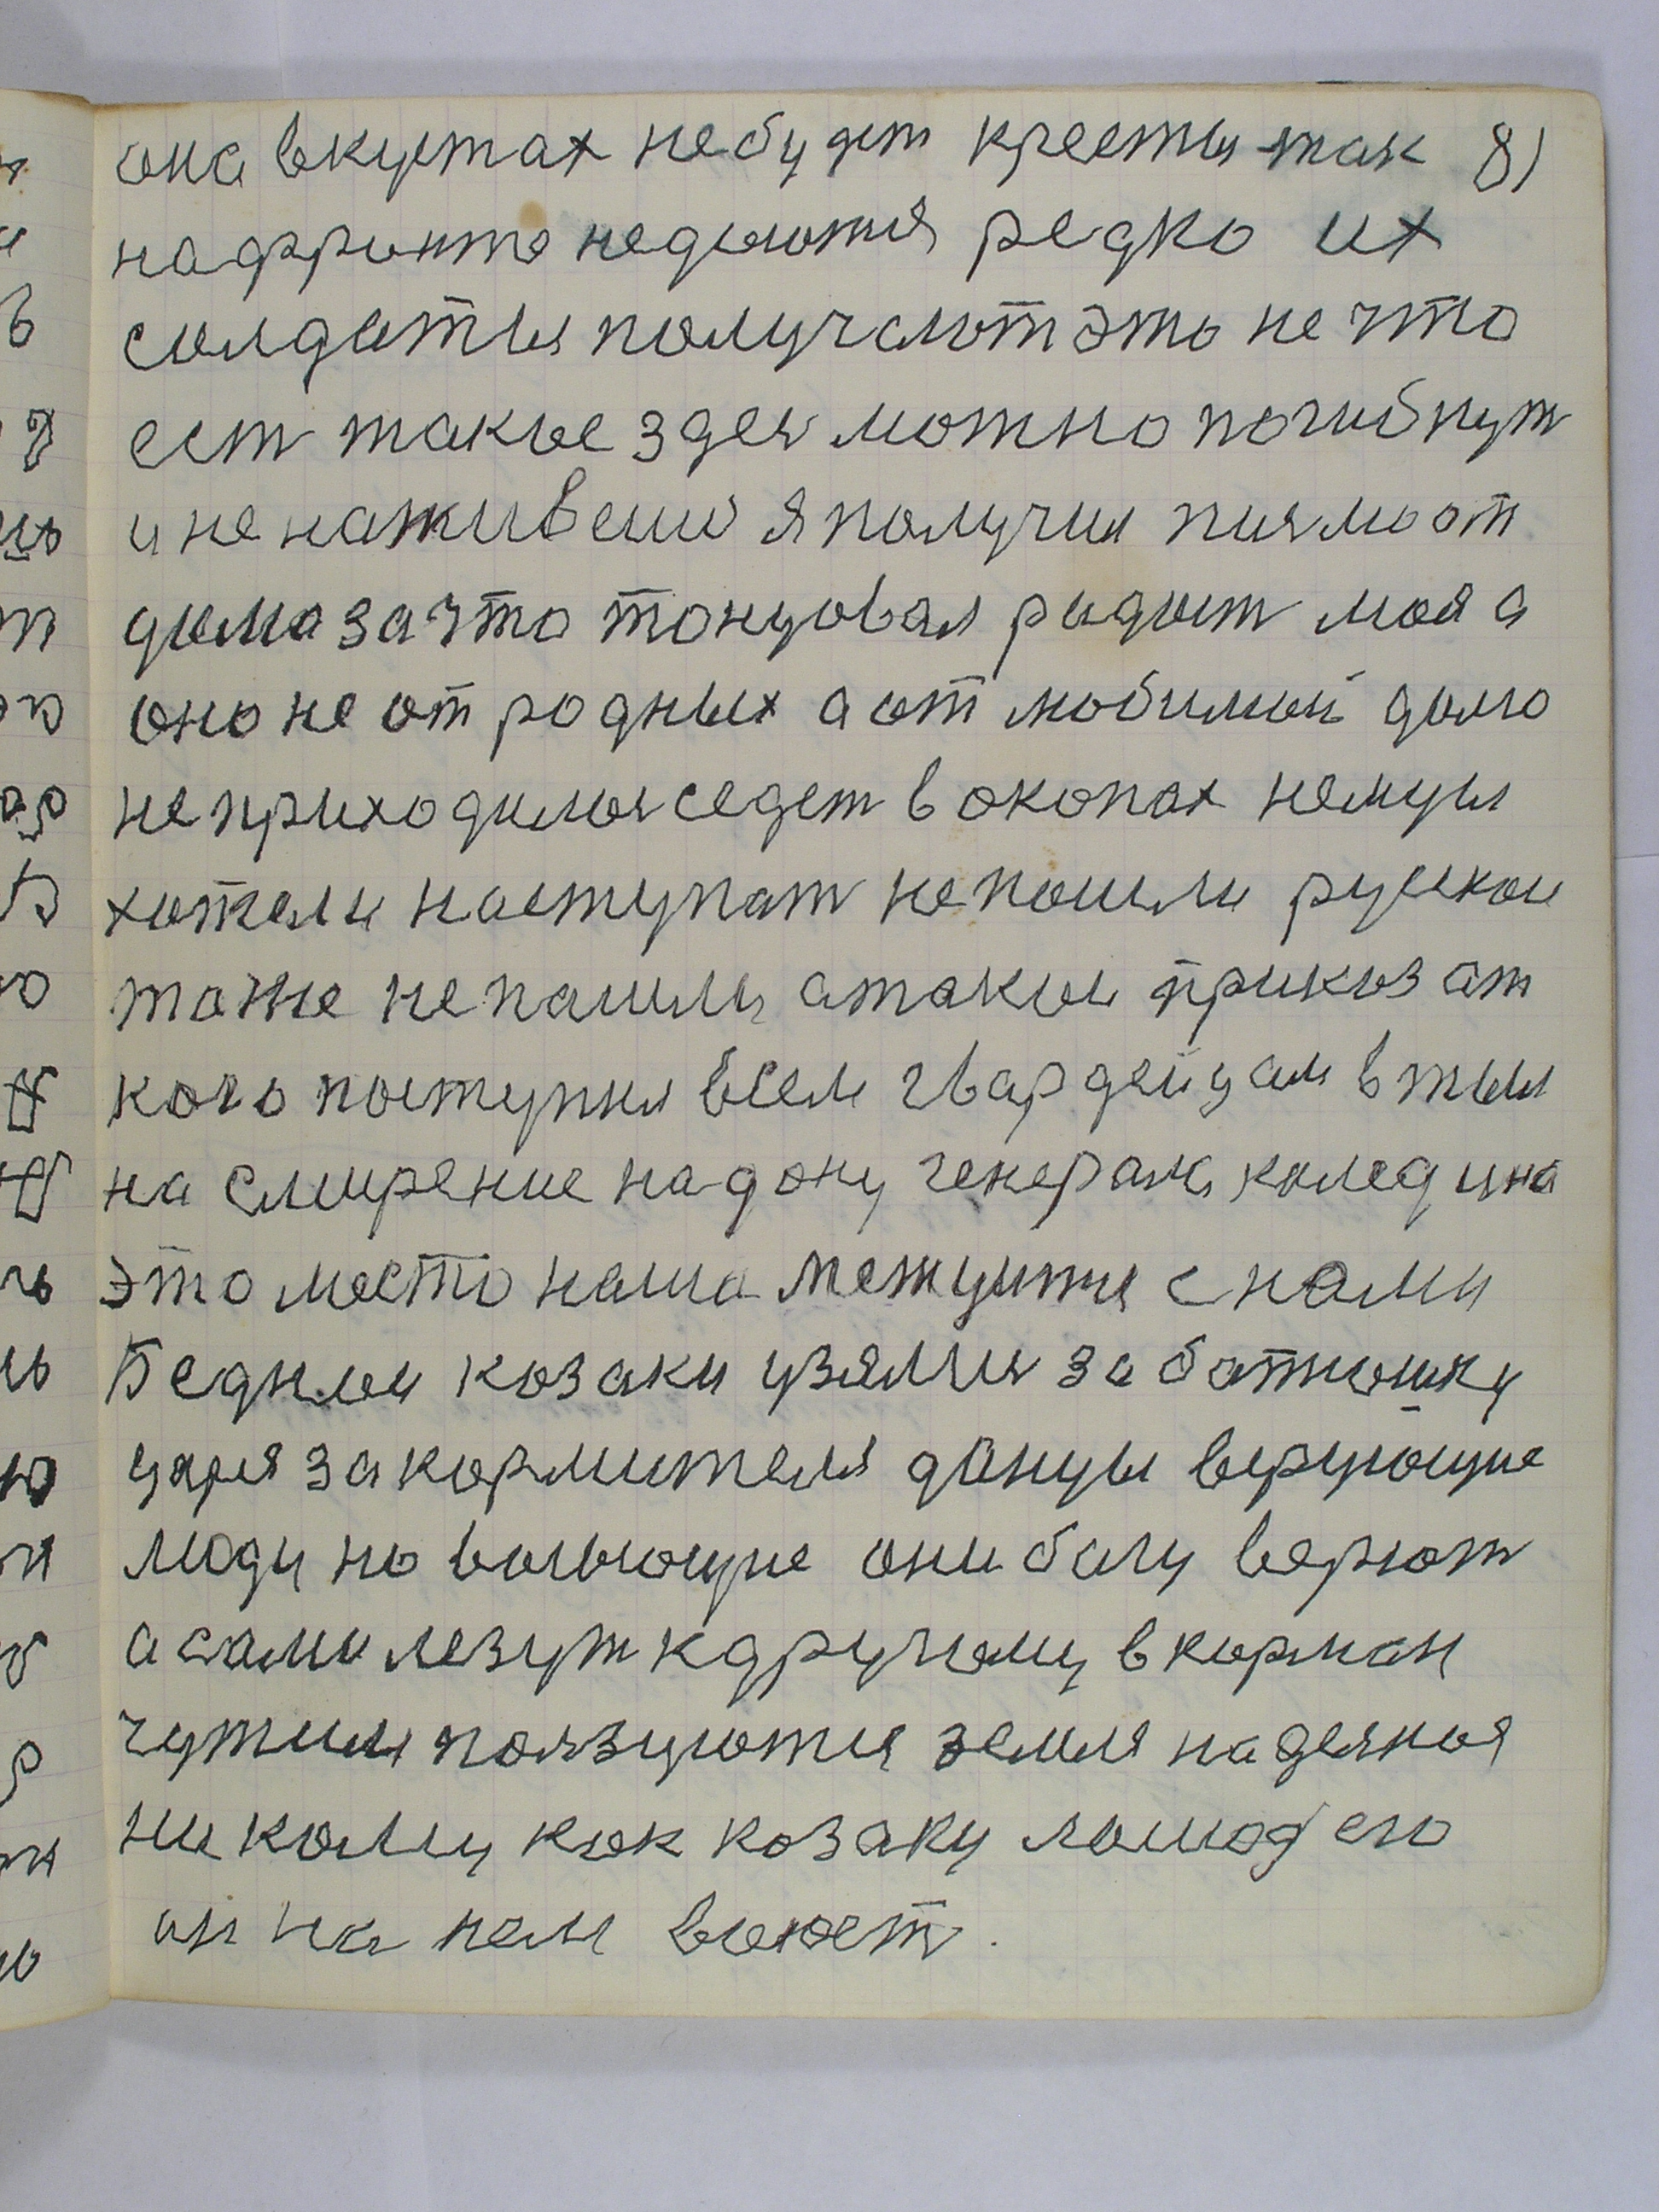 она вкустах небудет кресты так 81
нафронте недаются редко их
солдаты получают это не что
ест такое здес можно погибнут
и не наживеш я получил писмо от
дома за что танцовал радост моя а
оно не от родных а от любимой дамо
не приходилос седет в окопах немцы
хотели наступат не пошли руские
тоже не пашли атакои приказ от
кого поступил всем гвардейцам в тыл
на смирение на дону генерала каледина
это место наша межуитя с нами
Бедные козаки узялис за батюшку
царя за кормителя донцы верующие
люди но воюющие они богу верют
а сами лезут к другому в карман
чутким ползуются земля наделная
не кому как козаку лошад его
он на нем воюет.